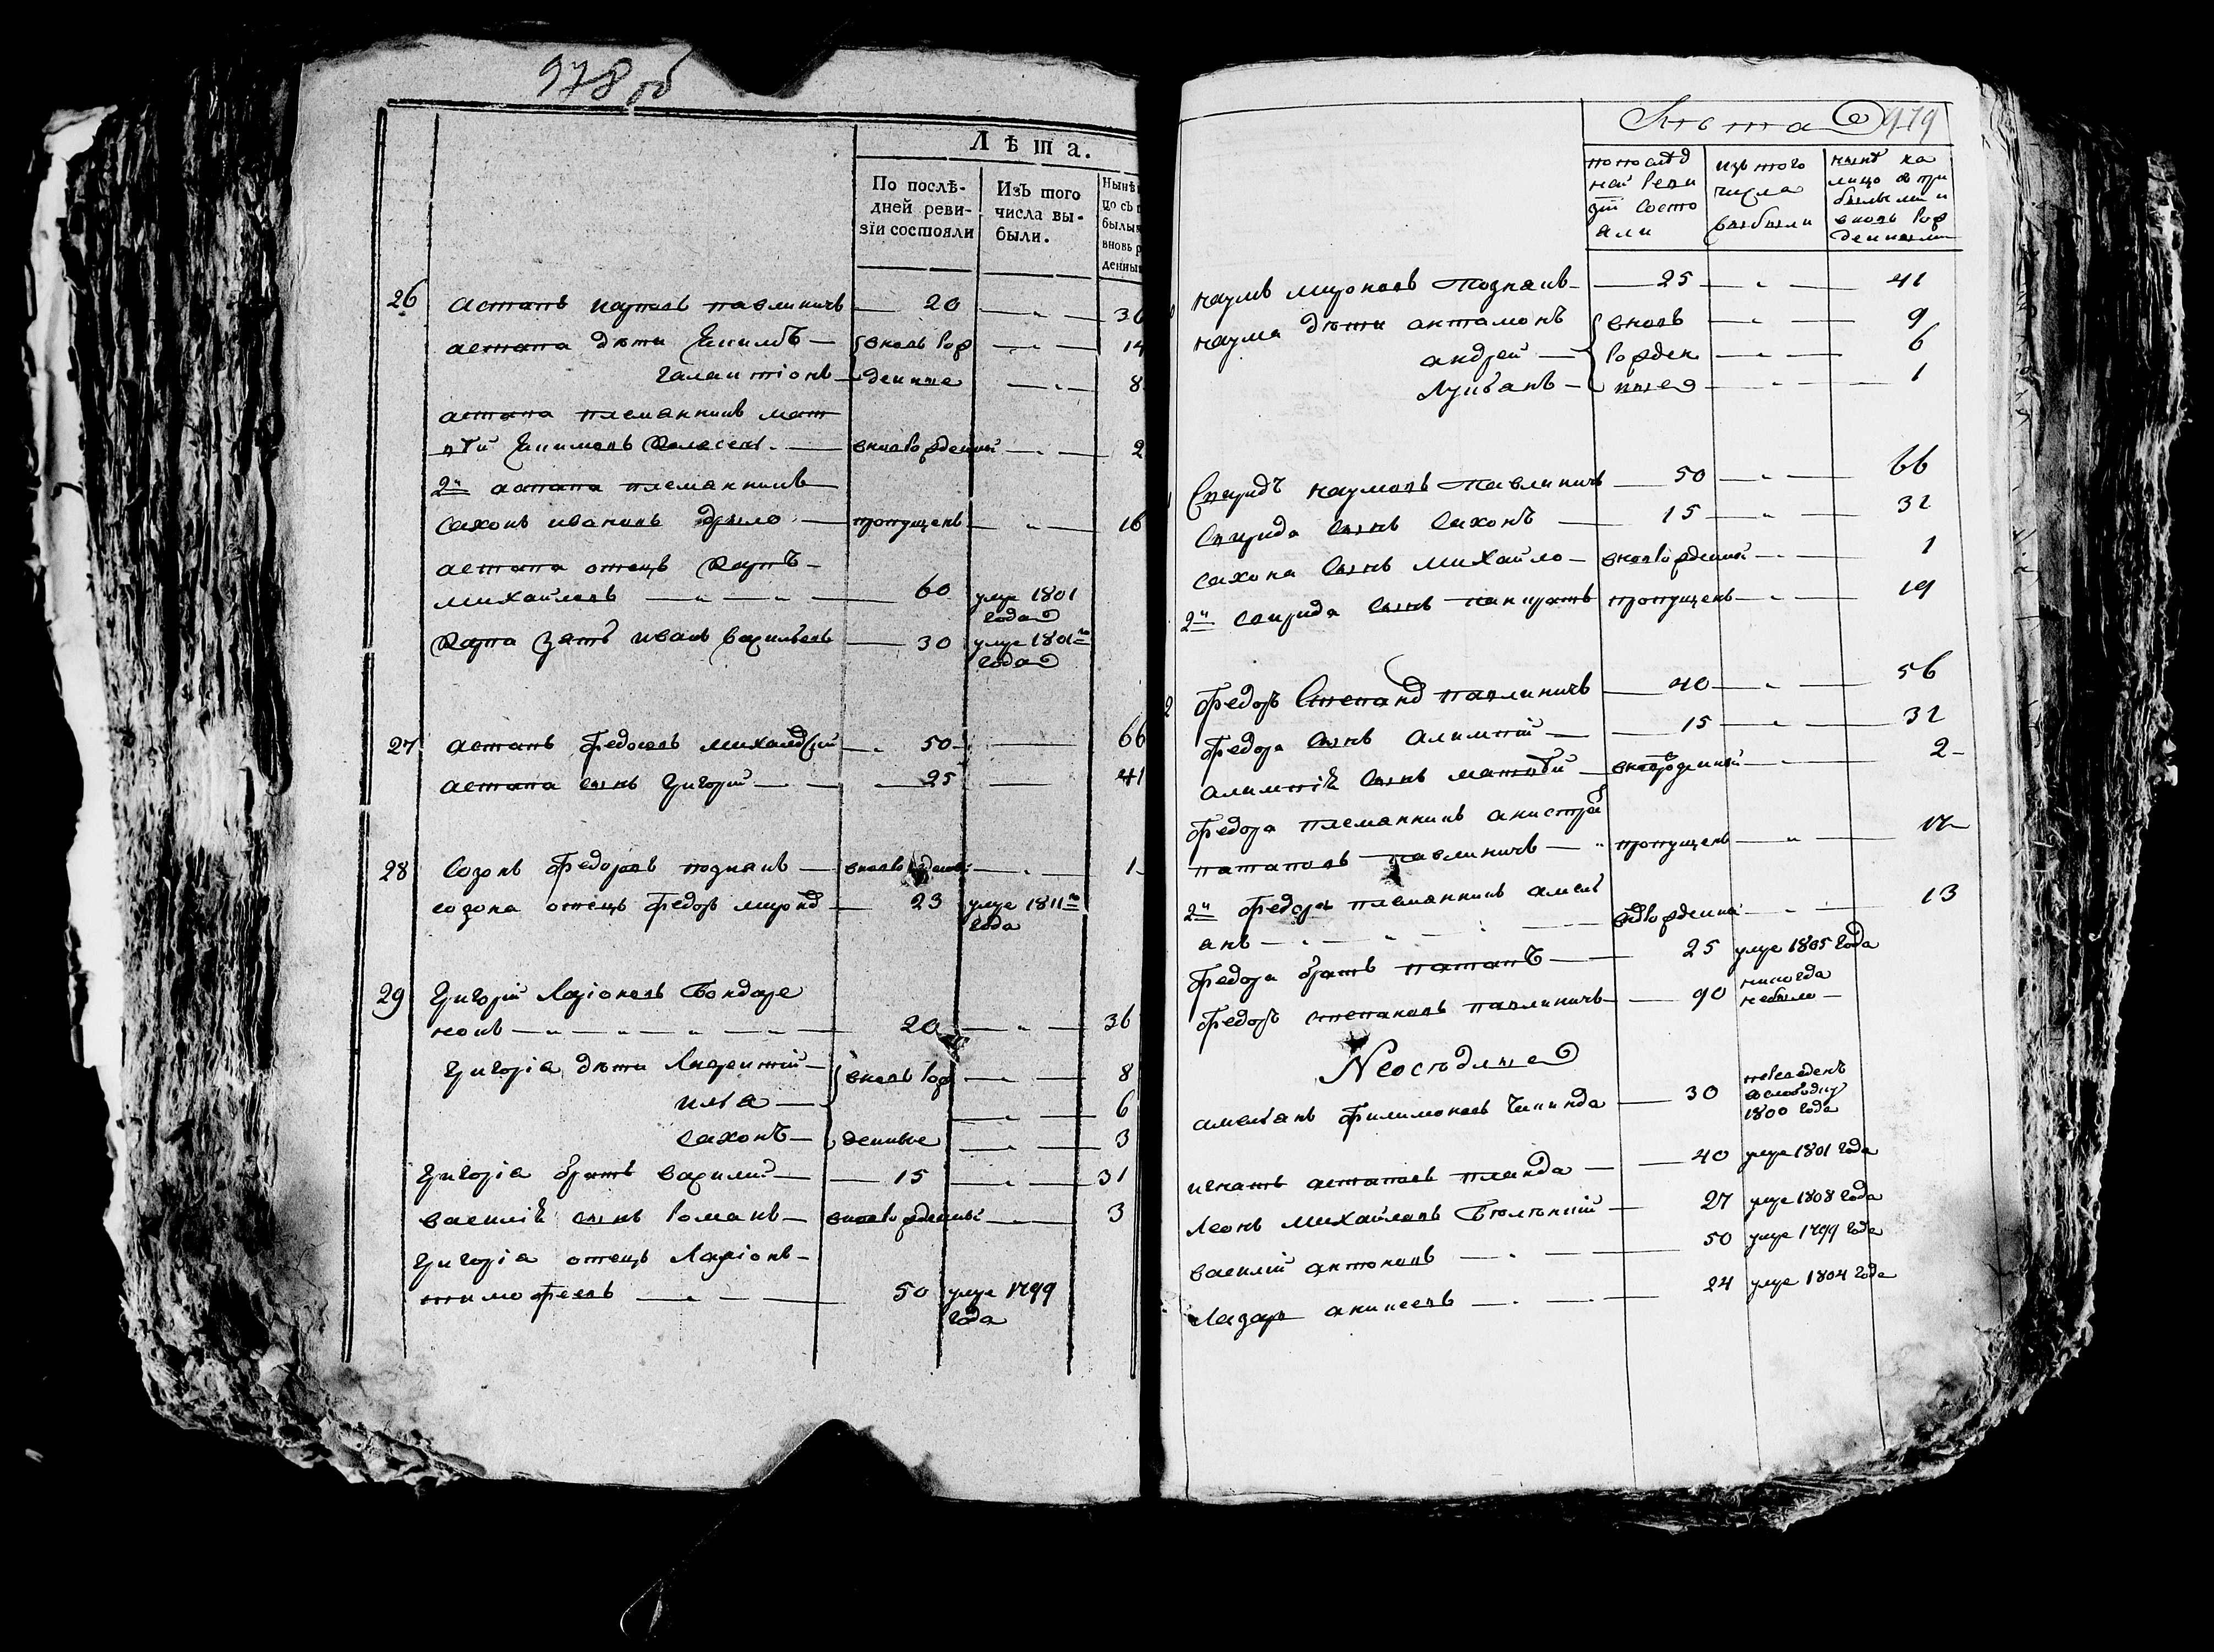 978 об
Лѣта.
По послѣ-
дней реви-
зіи состояли
Изъ того
числа вы-
были.
26 астапъ карповъ павлиничъ — 20 — „ — 36
астапа дѣти Якимъ — вновь рож — „ — 14
галактіонъ — денные — „ — 8
астапа племянникъ мат
вѣй Якимовъ — вноврожденный — „ — 2
2й астапа племянникъ
сахонъ ивановъ — пропущенъ — „ — 16
астапа отецъ Карпъ —
михайловъ — „ — „ — 60 умре 1801
года
Карпа зять иванъ васильевъ — 30 умре 1801го
года
27 астапъ федосовъ — 50 — 66
астапа сынъ григорій — 25 — 41
28 Созонъ федоровъ познанъ — вноврожденный — „ — 1
созона отецъ федоръ миронов — 23 умре 1811го
года
29 Григорій Ларіоновъ бондаре
нокъ — „ — „ — „ — 20 — „ — 36
Григорія дѣти Лаврентій — вновь рож — „ — 8
илья — „ — 6
сахонъ — денные — „ — 3
григорія братъ василий — 15 — „ — 31
василій сынъ романъ — вноврожденный — „ — 3
григорія отецъ Ларіонъ —
тимофеевъ — „ — 50 умре 1799
года
Лѣта 979
по послѣд
ней реви
зіи состо
яли
изъ того
числа
выбыли
нынѣ на
лицо съ при
былыми и
вновь рож
денными
наумъ мироновъ познанъ — 25 — „ — 41
наума дѣти антамонъ вновь — „ — 9
андрей — рожден — „ — 6
Лукьянъ — ные — „ — 1
Спиридъ наумовъ павлиничъ — 50 — „ — 66
Спирида сынъ сахонъ — 15 — „ — 31
сахона сынъ михайло — вноврожденный — „ — 1
2й спирида сынъ панкратъ пропущенъ — „ — 19
федоръ степанов павлиничъ — 40 — „ — 56
федора сынъ алимпій — 15 — „ — 31
алимпій сынъ матвѣй — вноврожденный — „ — 2
федора племянникъ
потаповъ павлиничъ — „ пропущенъ — „ — 17
2й федора племянникъ амел
янъ — „ — „ — вноврожденный — „ — 13
федора братъ потапъ — 25 умре 1805 года
федоръ степановъ павлиничъ — 90 никогда
небыло —
Неосѣдлые
амельянъ филимоновъ — 30
1800 года
игнатъ астаповъ — 40 умре 1801 года
Леонъ михайловъ — 27 умре 1808 года
василій антоновъ — „ — 50 умре 1799 года
Лазарь — „ — 24 умре 1804 года